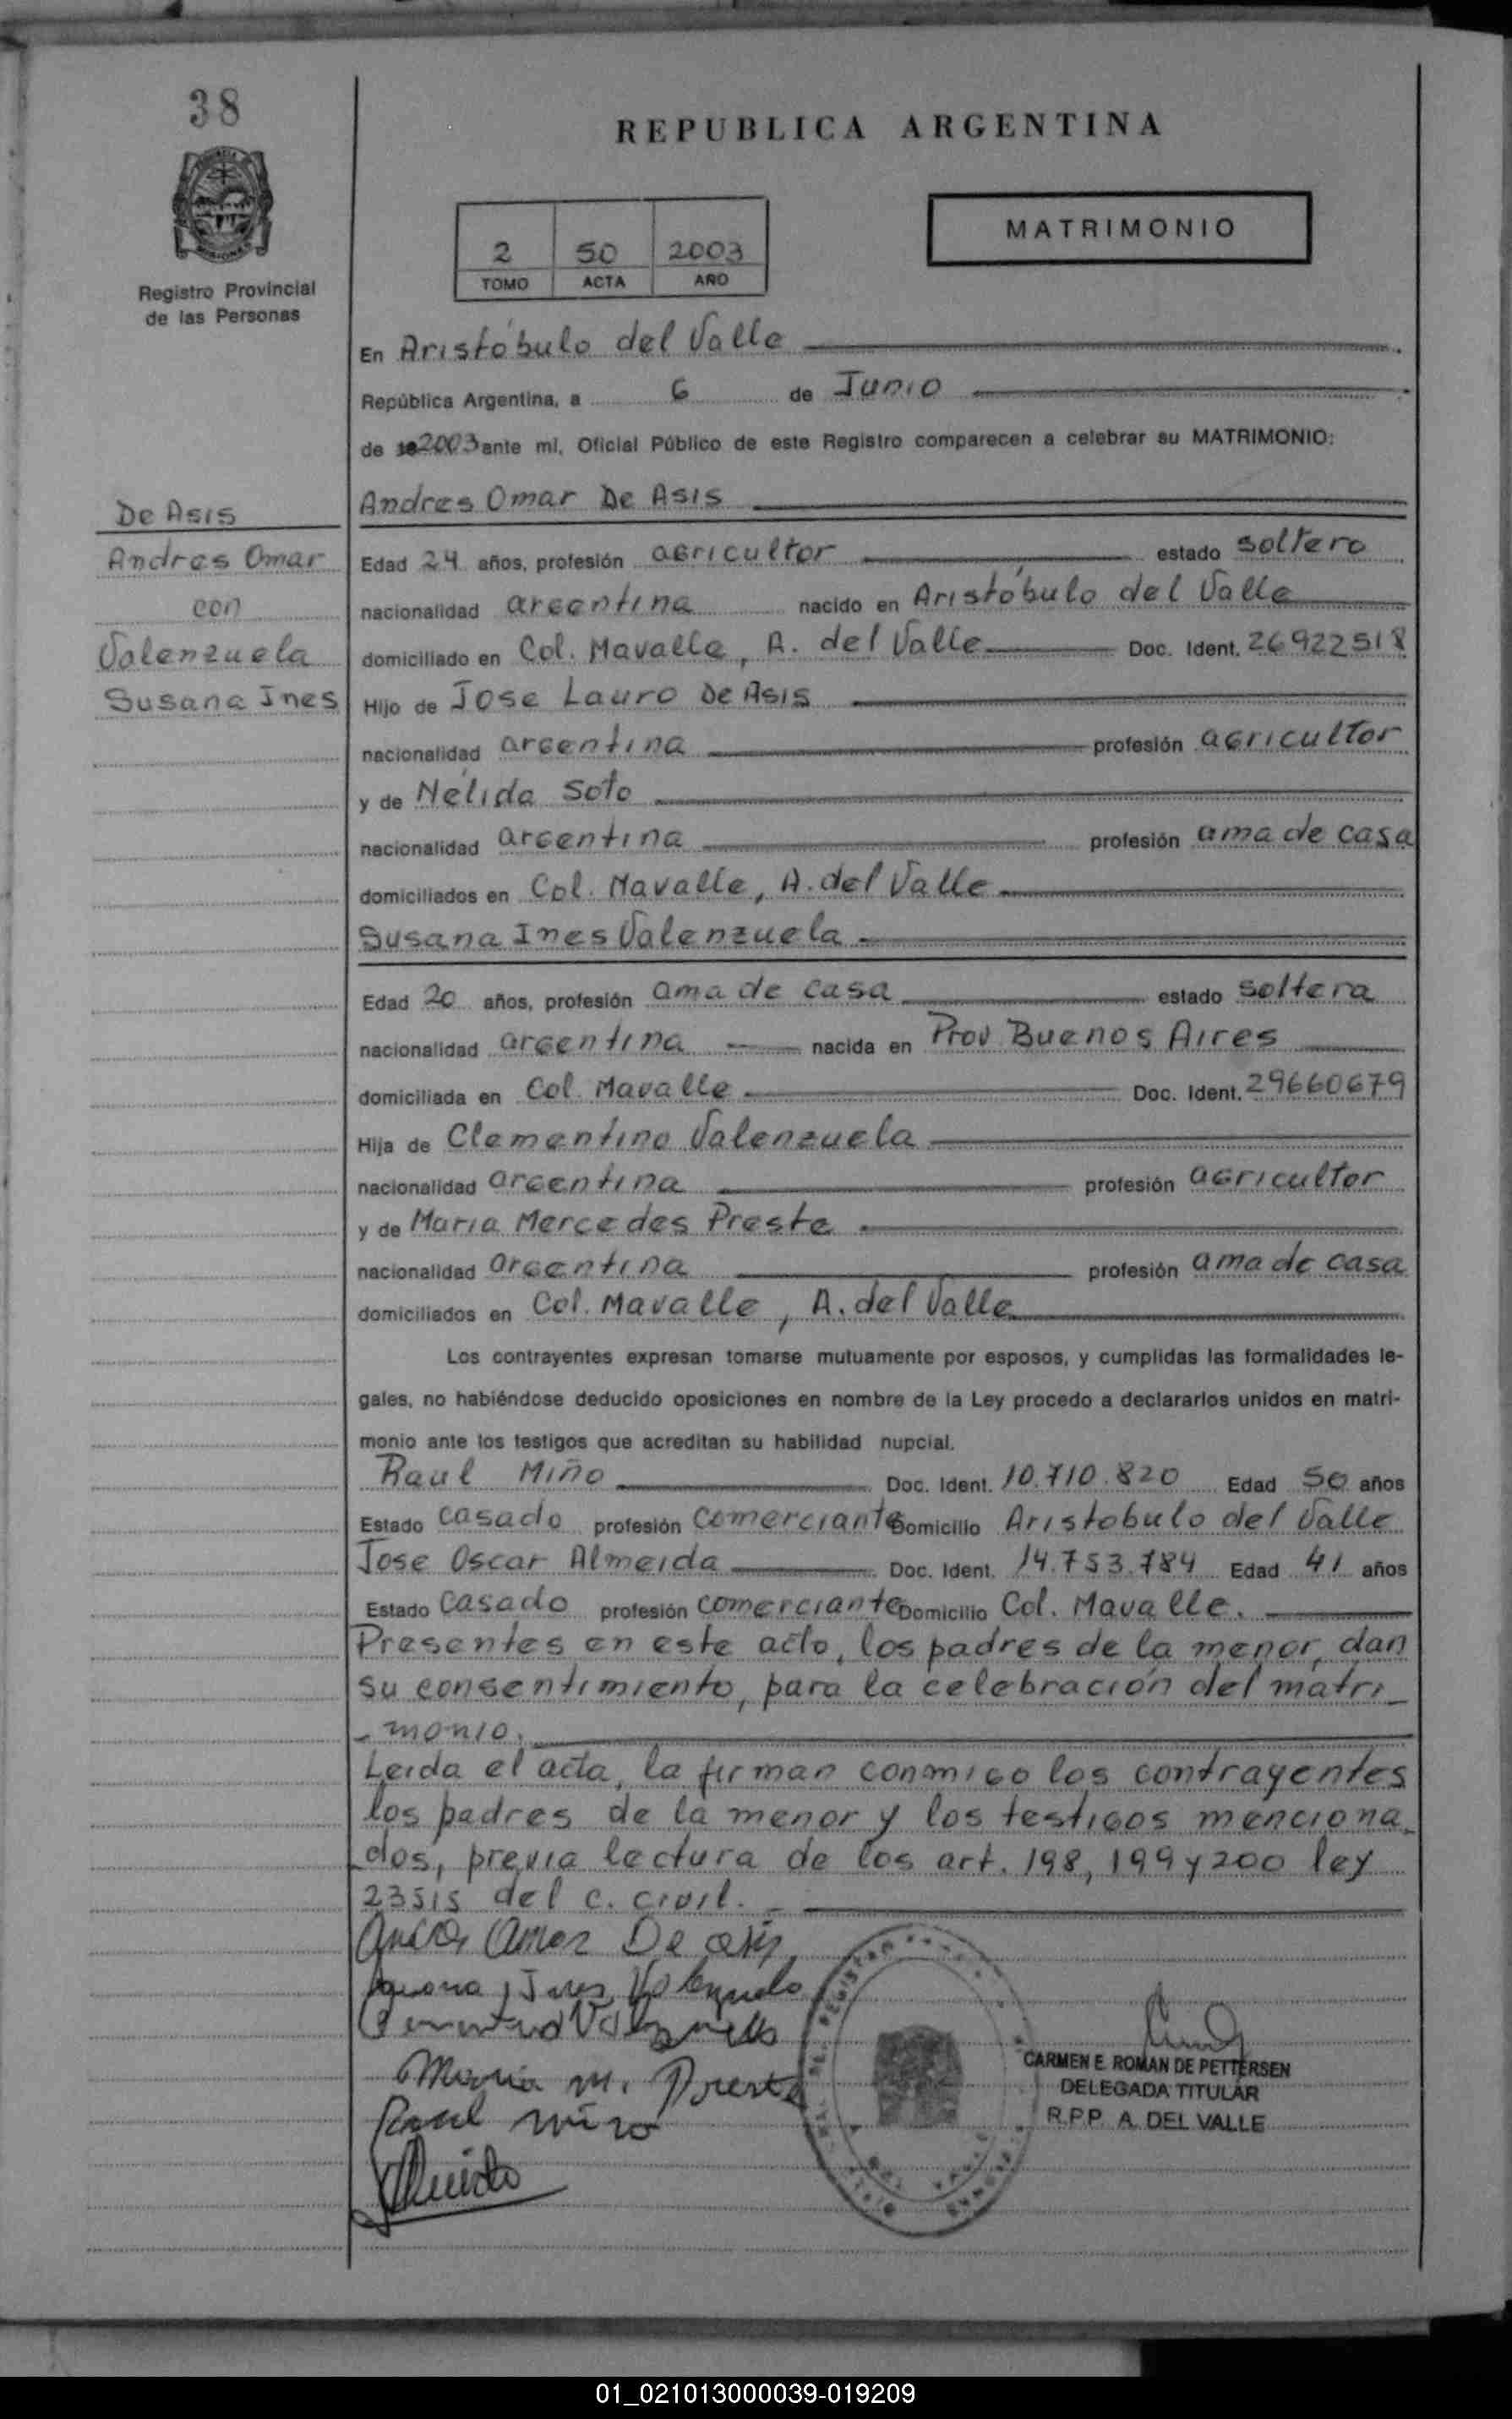 38
REPUBLICA ARGENTINA
MATRIMONIO
2 50 2003
TOMO ACTA AÑO
Registro Provincial
de las Personas
En Aristóbulo del Valle
República Argentina, a 6 de Junio
de 2003 ante mí, Oficial Público de este Registro comparecen a celebrar su MATRIMONIO:
De Asis
Andres Omar
con
Valenzuela
Susana Ines
Andres Omar De Asis
Edad 24 años, profesión agricultor estado soltero
nacionalidad argentina nacido en Aristóbulo del Valle
domiciliado en Col. Mavalle, A. del Valle Doc. Ident. 26922518
Hijo de Jose Lauro De Asis
nacionalidad argentina profesión agricultor
y de Nélida Soto
nacionalidad argentina profesión ama de casa
domiciliados en Col. Mavalle, A. del Valle
Susana Ines Valenzuela
Edad 20 años, profesión ama de casa estado soltera
nacionalidad argentina nacida en Prov Buenos Aires
domiciliada en Col. Mavalle Doc. Ident. 29660679
Hija de Clementino Valenzuela
nacionalidad argentina profesión agricultor
y de Maria Mercedes Preste
nacionalidad argentina profesión ama de casa
domiciliados en Col. Mavalle, A. del Valle
Los contrayentes expresan tomarse mutuamente por esposos, y cumplidas las formalidades le-
gales, no habiéndose deducido oposiciones en nombre de la Ley procedo a declararlos unidos en matri-
monio ante los testigos que acreditan su habilidad nupcial.
Raul Miño Doc. Ident. 10.710.820 Edad 50 años
Estado casado profesión comerciante Domicilio Aristobulo del Valle
Jose Oscar Almeida Doc. Ident. 14.753.784 Edad 41 años
Estado casado profesión comerciante Domicilio Col. Mavalle.
Presentes en este acto, los padres de la menor, dan
su consentimiento, para la celebración del matri-
-monio.
Leida el acta, la firman conmigo los contrayentes
los padres de la menor y los testigos menciona-
-dos, previa lectura de los art. 198, 199 y 200 ley
23515 del c. civil.
Omar De asis
Ines Valenzuela
Valenzuela
Maria M. Preste
Raul Miño
CARMEN E. ROMAN DE PETTERSEN
DELEGADA TITULAR
R.P.P. A. DEL VALLE
01_021013000039-019209